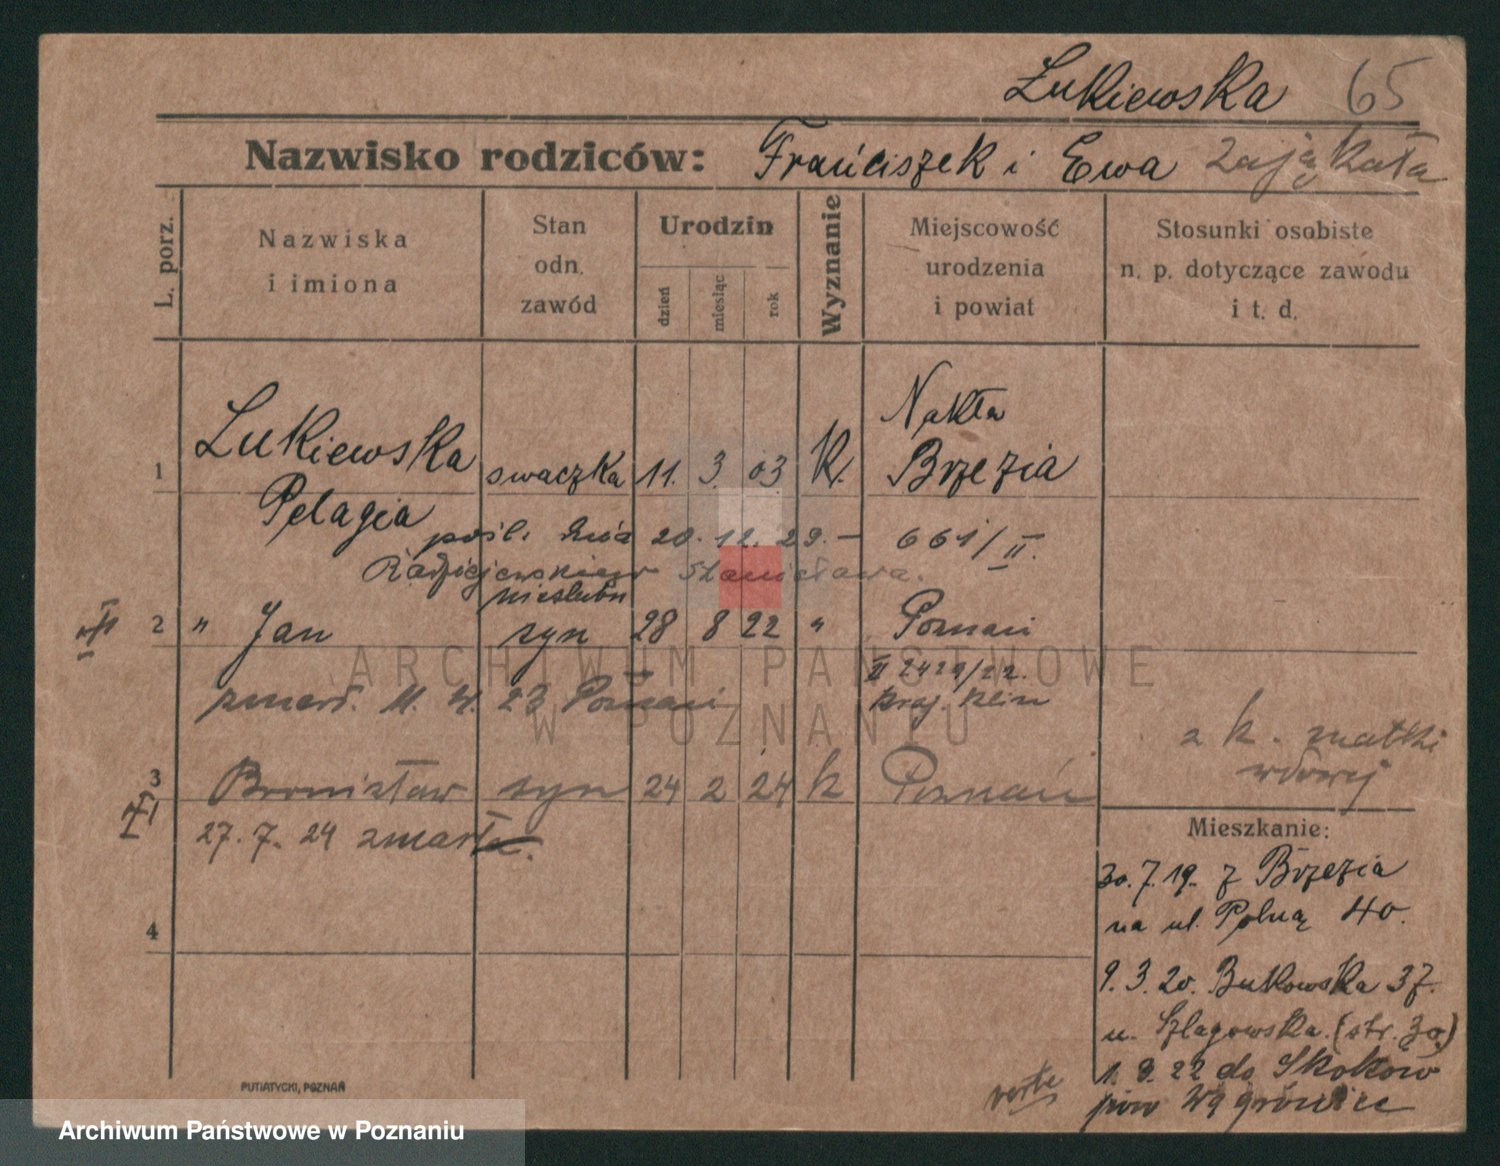 Łukiewska 65
Nazwisko rodziców: Franciszek i Ewa
L. porz.
Nazwiska i imiona
Stan odn. zawód
Urodzin
dzień
miesiąc
rok
Wyznanie
Miejscowość urodzenia i powiat
Stosunki osobiste n. p. dotyczące zawodu i t. d.
Nakła
1 Łukiewska swaczka 11. 3. 03 K. Brzezia
Pelagia pośl. dnia 20. 12. 29. — 661/II.
Stanisława.
nieślubn
2 " Jan syn 28 8 22 " Poznań
II 2429/22.
zmarł. 11. 23 Poznań
z k. matki
wdowej
3 Bronisław syn 24 2 24 k Poznań
27. 7. 24 zmarł
Mieszkanie:
30. 7. 19. z Brzezia
na ul. Polną 40.
4
9. 3. 20. Bukowska 37.
u. Szlagowska (str. 30)
1. 9. 22 do Skoków
pow Wągrówiec
verte
PUTIATYCKI, POZNAŃ
ARCHIWUM PAŃSTWOWE
W POZNANIU
Archiwum Państwowe w Poznaniu